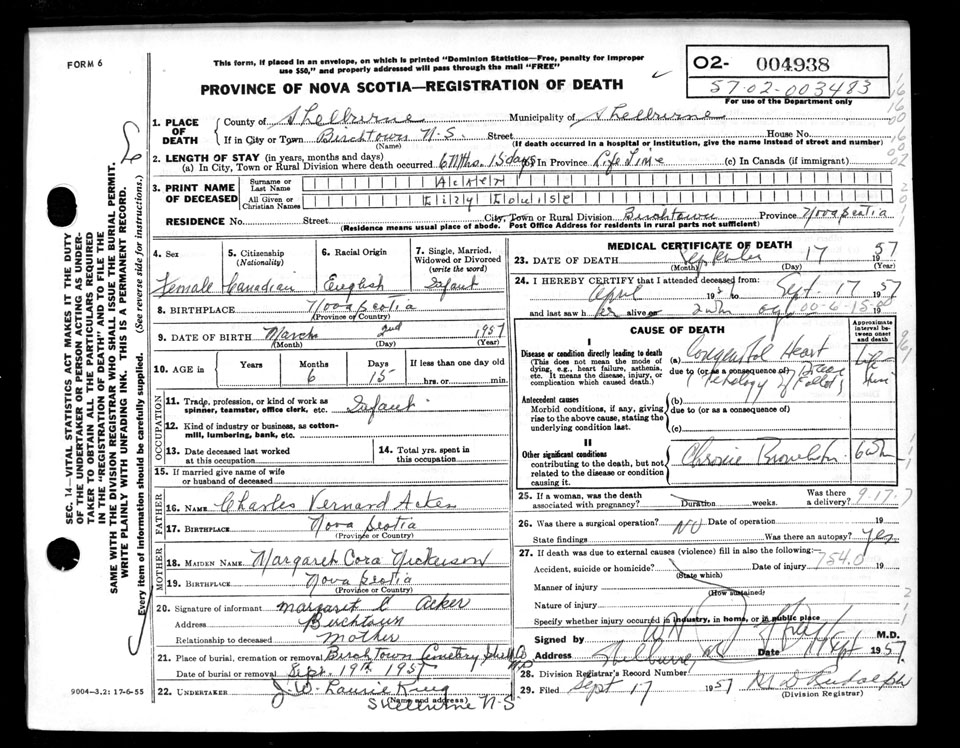 FORM 6
This form, if placed in an envelope, on which is printed "Dominion Statistics—Free, penalty for improper
use $50," and properly addressed will pass through the mail "FREE"
PROVINCE OF NOVA SCOTIA—REGISTRATION OF DEATH
O2- 004938
57-02-003483
For use of the Department only
SEC. 14—VITAL STATISTICS ACT MAKES IT THE DUTY
OF THE UNDERTAKER OR PERSON ACTING AS UNDER-
TAKER TO OBTAIN ALL THE PARTICULARS REQUIRED
IN THE "REGISTRATION OF DEATH" AND TO FILE THE
SAME WITH THE DIVISION REGISTRAR WHO SHALL ISSUE THE BURIAL PERMIT.
WRITE PLAINLY WITH UNFADING INK. THIS IS A PERMANENT RECORD.
Every item of information should be carefully supplied. (See reverse side for instructions.)
1. PLACE OF DEATH
County of Shelburne Municipality of Shelburne
If in City or Town Birchtown N.S. Street House No.
(Name) (If death occurred in a hospital or institution, give the name instead of street and number)
2. LENGTH OF STAY (in years, months and days)
(a) In City, Town or Rural Division where death occurred 6 Mths. 15 days (b) In Province Life Time (c) In Canada (if immigrant)
3. PRINT NAME OF DECEASED
Surname or Last Name Acker
All Given or Christian Names Louise
RESIDENCE No. Street City, Town or Rural Division Birchtown Province Nova Scotia
(Residence means usual place of abode. Post Office Address for residents in rural parts not sufficient)
4. Sex
Female
5. Citizenship (Nationality)
Canadian
6. Racial Origin
English
7. Single, Married, Widowed or Divorced (write the word)
Infant
8. BIRTHPLACE Nova Scotia
(Province or Country)
9. DATE OF BIRTH March 2nd 1957
(Month) (Day) (Year)
10. AGE in Years Months 6 Days 15 If less than one day old hrs. or min.
OCCUPATION
11. Trade, profession, or kind of work as
spinner, teamster, office clerk, etc. Infant
12. Kind of industry or business, as cotton-
mill, lumbering, bank, etc.
13. Date deceased last worked at this occupation
14. Total yrs. spent in this occupation
15. If married give name of wife
or husband of deceased
FATHER
16. NAME Charles Vernard Acker
17. BIRTHPLACE Nova Scotia
(Province or Country)
MOTHER
18. MAIDEN NAME Margaret Cora Nickerson
19. BIRTHPLACE Nova Scotia
(Province or Country)
20. Signature of informant Margaret C Acker
Address Birchtown
Relationship to deceased Mother
21. Place of burial, cremation or removal Birchtown Cemetery Shel Co N.S
Date of burial or removal Sept. 19th 1957
22. UNDERTAKER J. W. Laurie King
(Name and address)
Shelburne N-S
9004-3.2: 17-6-55
MEDICAL CERTIFICATE OF DEATH
23. DATE OF DEATH September 17 1957
(Month) (Day) (Year)
24. I HEREBY CERTIFY that I attended deceased from:
April 195 to Sept. 17 1957
and last saw her alive on
CAUSE OF DEATH
Approximate interval between onset and death
I
Disease or condition directly leading to death (a) Congenital Heart
(This does not mean the mode of dying, e.g., heart failure, asthenia, etc. It means the disease, injury, or complication which caused death.)
due to (or as a consequence of)
Antecedent causes
Morbid conditions, if any, giving rise to the above cause, stating the underlying condition last.
(b)
due to (or as a consequence of)
(c)
II
Other significant conditions
contributing to the death, but not related to the disease or condition causing it.
Chronic
25. If a woman, was the death associated with pregnancy? Duration weeks. Was there a delivery?
9-17-7
26. Was there a surgical operation? NO Date of operation 19
State findings Was there an autopsy? Yes
27. If death was due to external causes (violence) fill in also the following:—
754.0
Accident, suicide or homicide? Date of injury 19
(State which)
Manner of injury
(How sustained)
Nature of injury
Specify whether injury occurred in industry, in home, or in public place
Signed by M.D.
Address Shelburne, NS Date 17 Sept 1957
28. Division Registrar's Record Number
29. Filed Sept 17 1957
(Division Registrar)